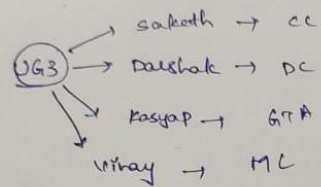 Saketh → CC
UG3 → Darshak → DC
Kasyap → GTA
Vinay → MC